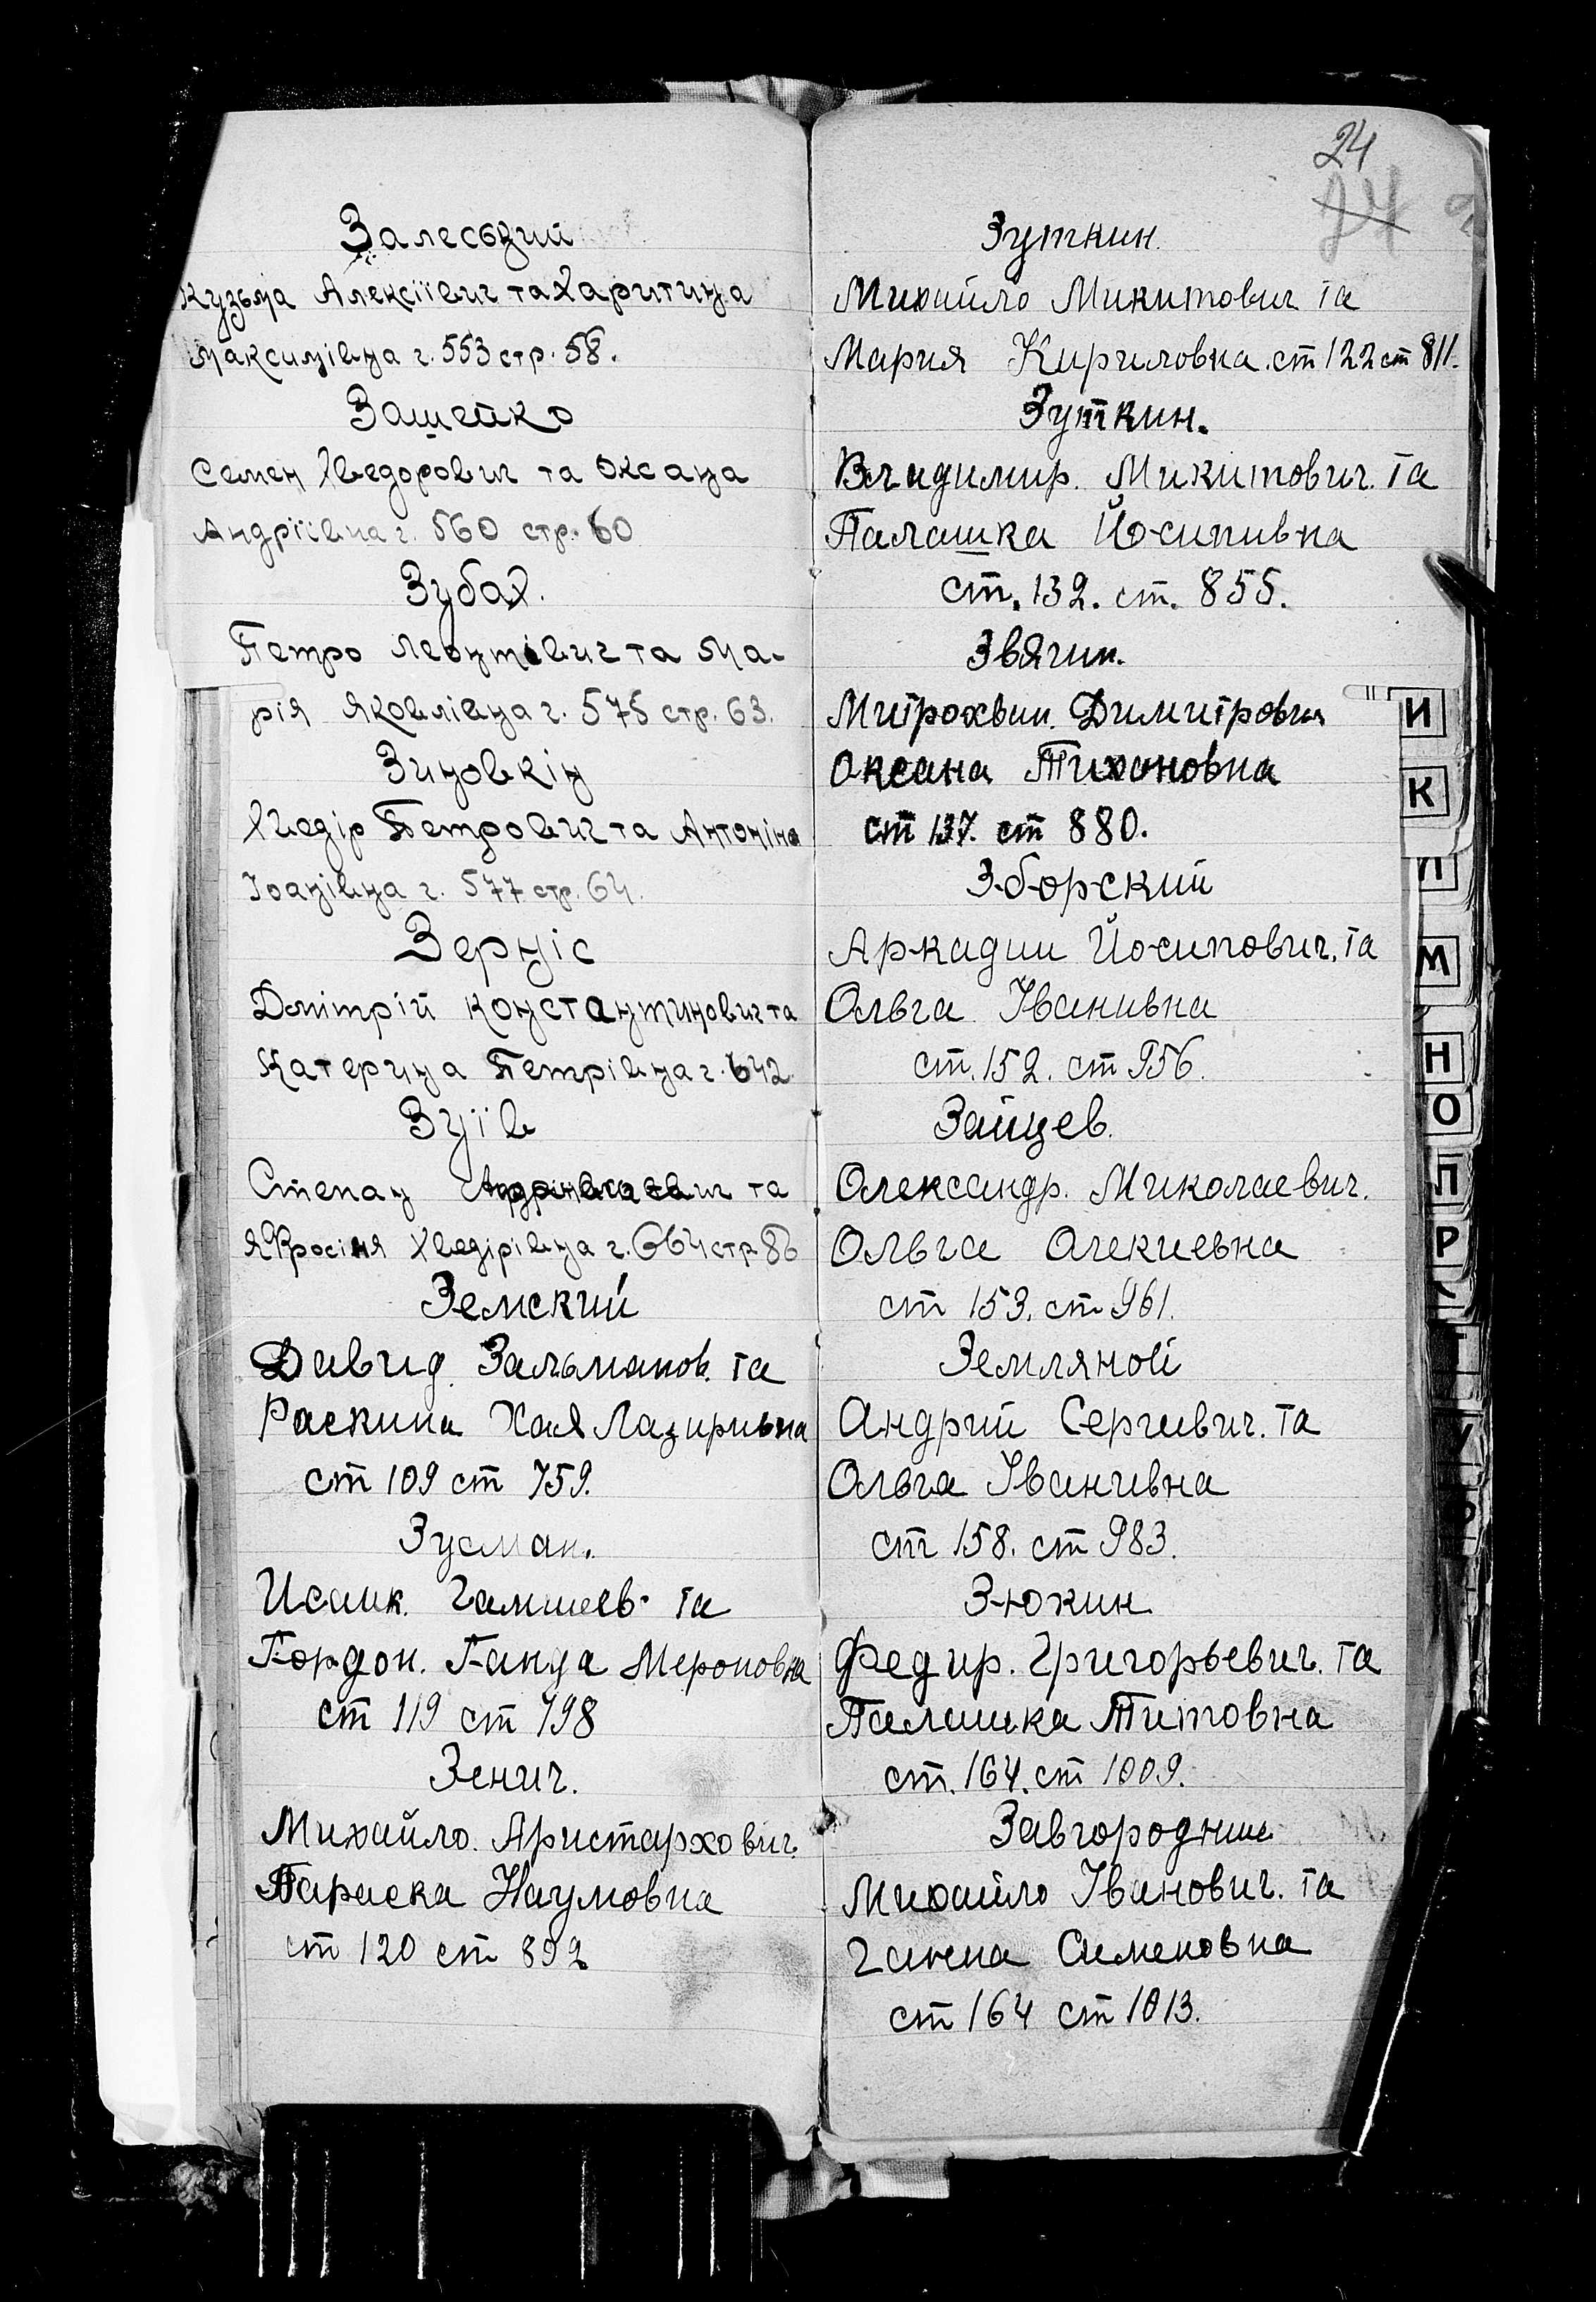 Залеський
Кузьма Алексіївич та Харитина
Максимівна г. 553 стр. 58.
Зашейко
Семен Хведорович та Оксана
Андріївна г. 560 стр. 60
Зубах.
Петро Леонтівич та Ма-
рія Яковлівна г. 575 стр. 63.
Зиновкін
Хведір Петрович та Антоніна
Іоанівна г. 577 стр. 64.
Зерніс
Дмітрій Константинович та
Катерина Петрівна г. 642
Зуїв
Степан та
Яфросіня Хведірівна г. 664 стр. 86
Земский
Давид Зальманов. та
Раскина Хая Лазиривна
ст 109 ст 759.
Зусман.
Исаик та
Гордон. Ганна Мероновна
ст 119 ст 798
Зенич.
Михайло. Аристархович.
Параска Наумовна
ст 120 ст 802
24
24
Зуткин.
Михайло Микитович та
Мария Кириловна. ст 122 ст 811.
Зуткин.
Владимир. Микитович. та
Палашка Йосипивна
ст. 132. ст. 855.
Звягин.
Митрохвин Димитрович
Оксана Тихоновна
ст 137. ст 880.
Зборский
Аркадии Йосипович. та
Ольга Іванивна
ст. 152. ст 956.
Зайцев.
Олександр. Миколаевич.
Ольга Олекиевна
ст 153. ст 961.
Земляной
Андрий Сергиевич. та
Ольга Іванивна
ст 158. ст 983.
Зюкин
Федир. Григорьевич. та
Палашка Титовна
ст. 164. ст 1009.
Завгородние
Михайло Іванович. та
Ганна Сименовна
ст 164 ст 1013.
И
К
Л
М
Н
О
П
Р
Т
У